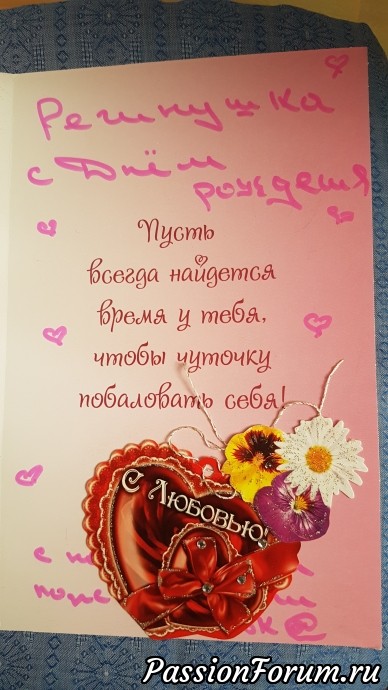 Регинушка
с Днём
рождения
Пусть
всегда найдется
время у тебя,
чтобы чуточку
побаловать себя!
С Любовью!
с
PassionForum.ru